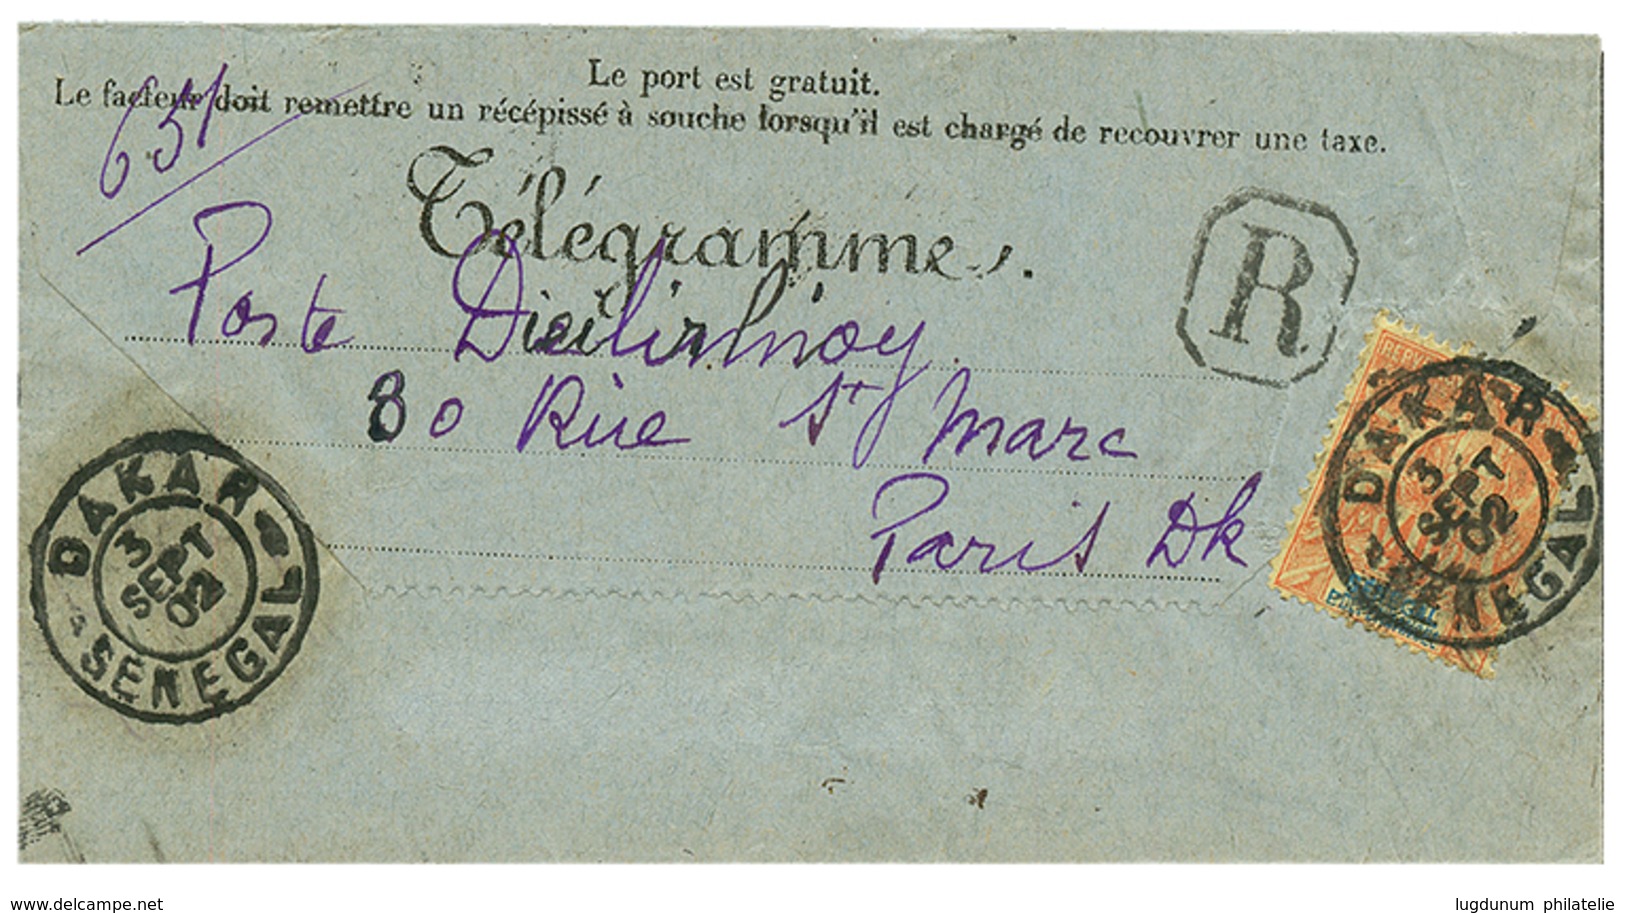 Le port est gratuit.
Le facteur doit remettre un récépissé à souche lorsqu'il est chargé de recouvrer une taxe.
651
Télégramme.
R
Poste
80 Rue St Marc
Paris Dk
DAKAR
3
SEPT
02
SENEGAL
DAKAR
3
SEPT
02
SENEGAL
delcampe.net
lugdunum philatelie